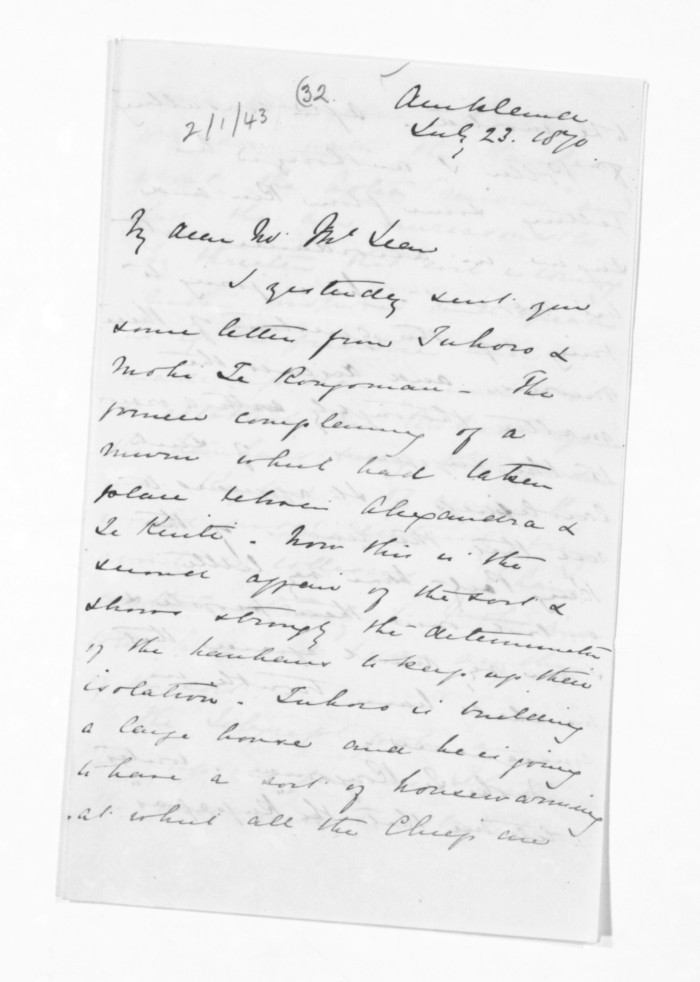 32.
2/1/43
Auckland
July 23. 1870.
My dear Mr. McLean
I yesterday sent you
some letters from Tuhoro &
Mohi Te Rongomau - The
former complaining of a
muru which had taken
place between Alexandra &
Te Kuiti - Now this is the
second affair of the sort &
shows strongly the determination
of the hauhaus to keep up their
isolation - Tuhoro is building
a large house and he is going
to have a sort of housewarming
at which all the Chiefs are